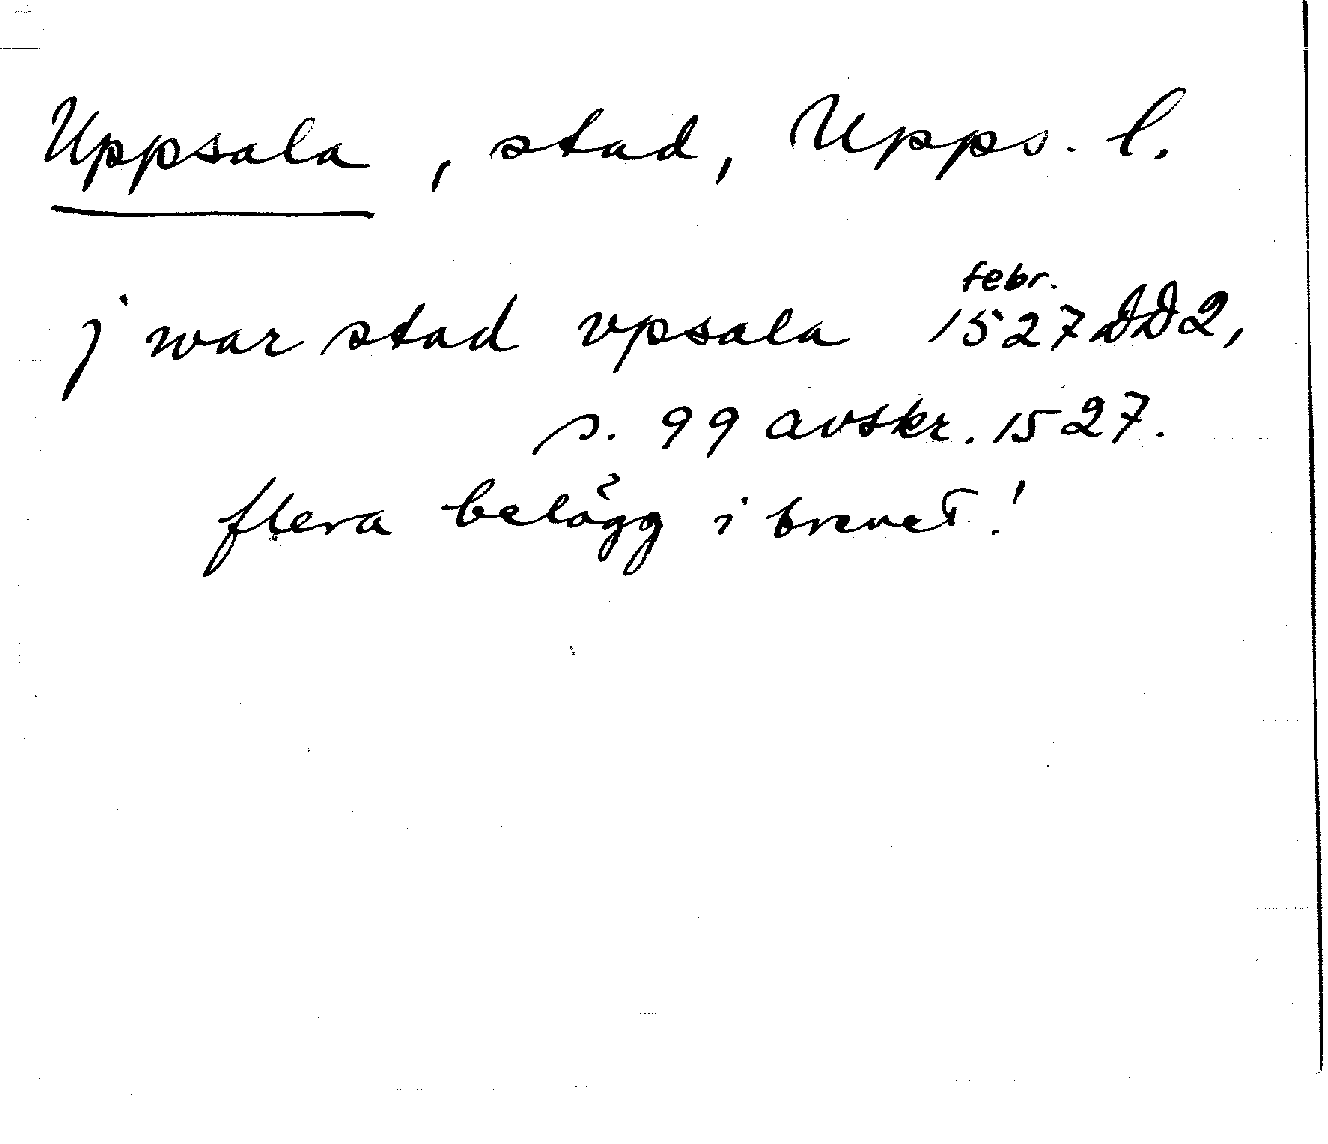 Uppsala, stad, Upps. l.
febr.
j war stad vpsala 1527 DD2,
s. 99 avskr. 1527.
flera belägg i brevet!